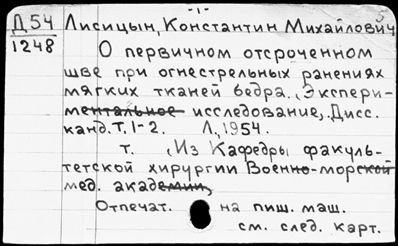 - 1 -
Д 54 Лисицын, Константин Михайлович
1248
О первичном отсроченном
шве при огнестрельных ранениях
мягких тканей бедра. Экспери-
ментальное исследование. Дисс.
канд. Т. 1-2. Л., 1954.
т. (Из Кафедры факуль-
тетской хирургии Военно-морской
мед. академии)
Отпечат. на пиш. маш.
см. след. карт.